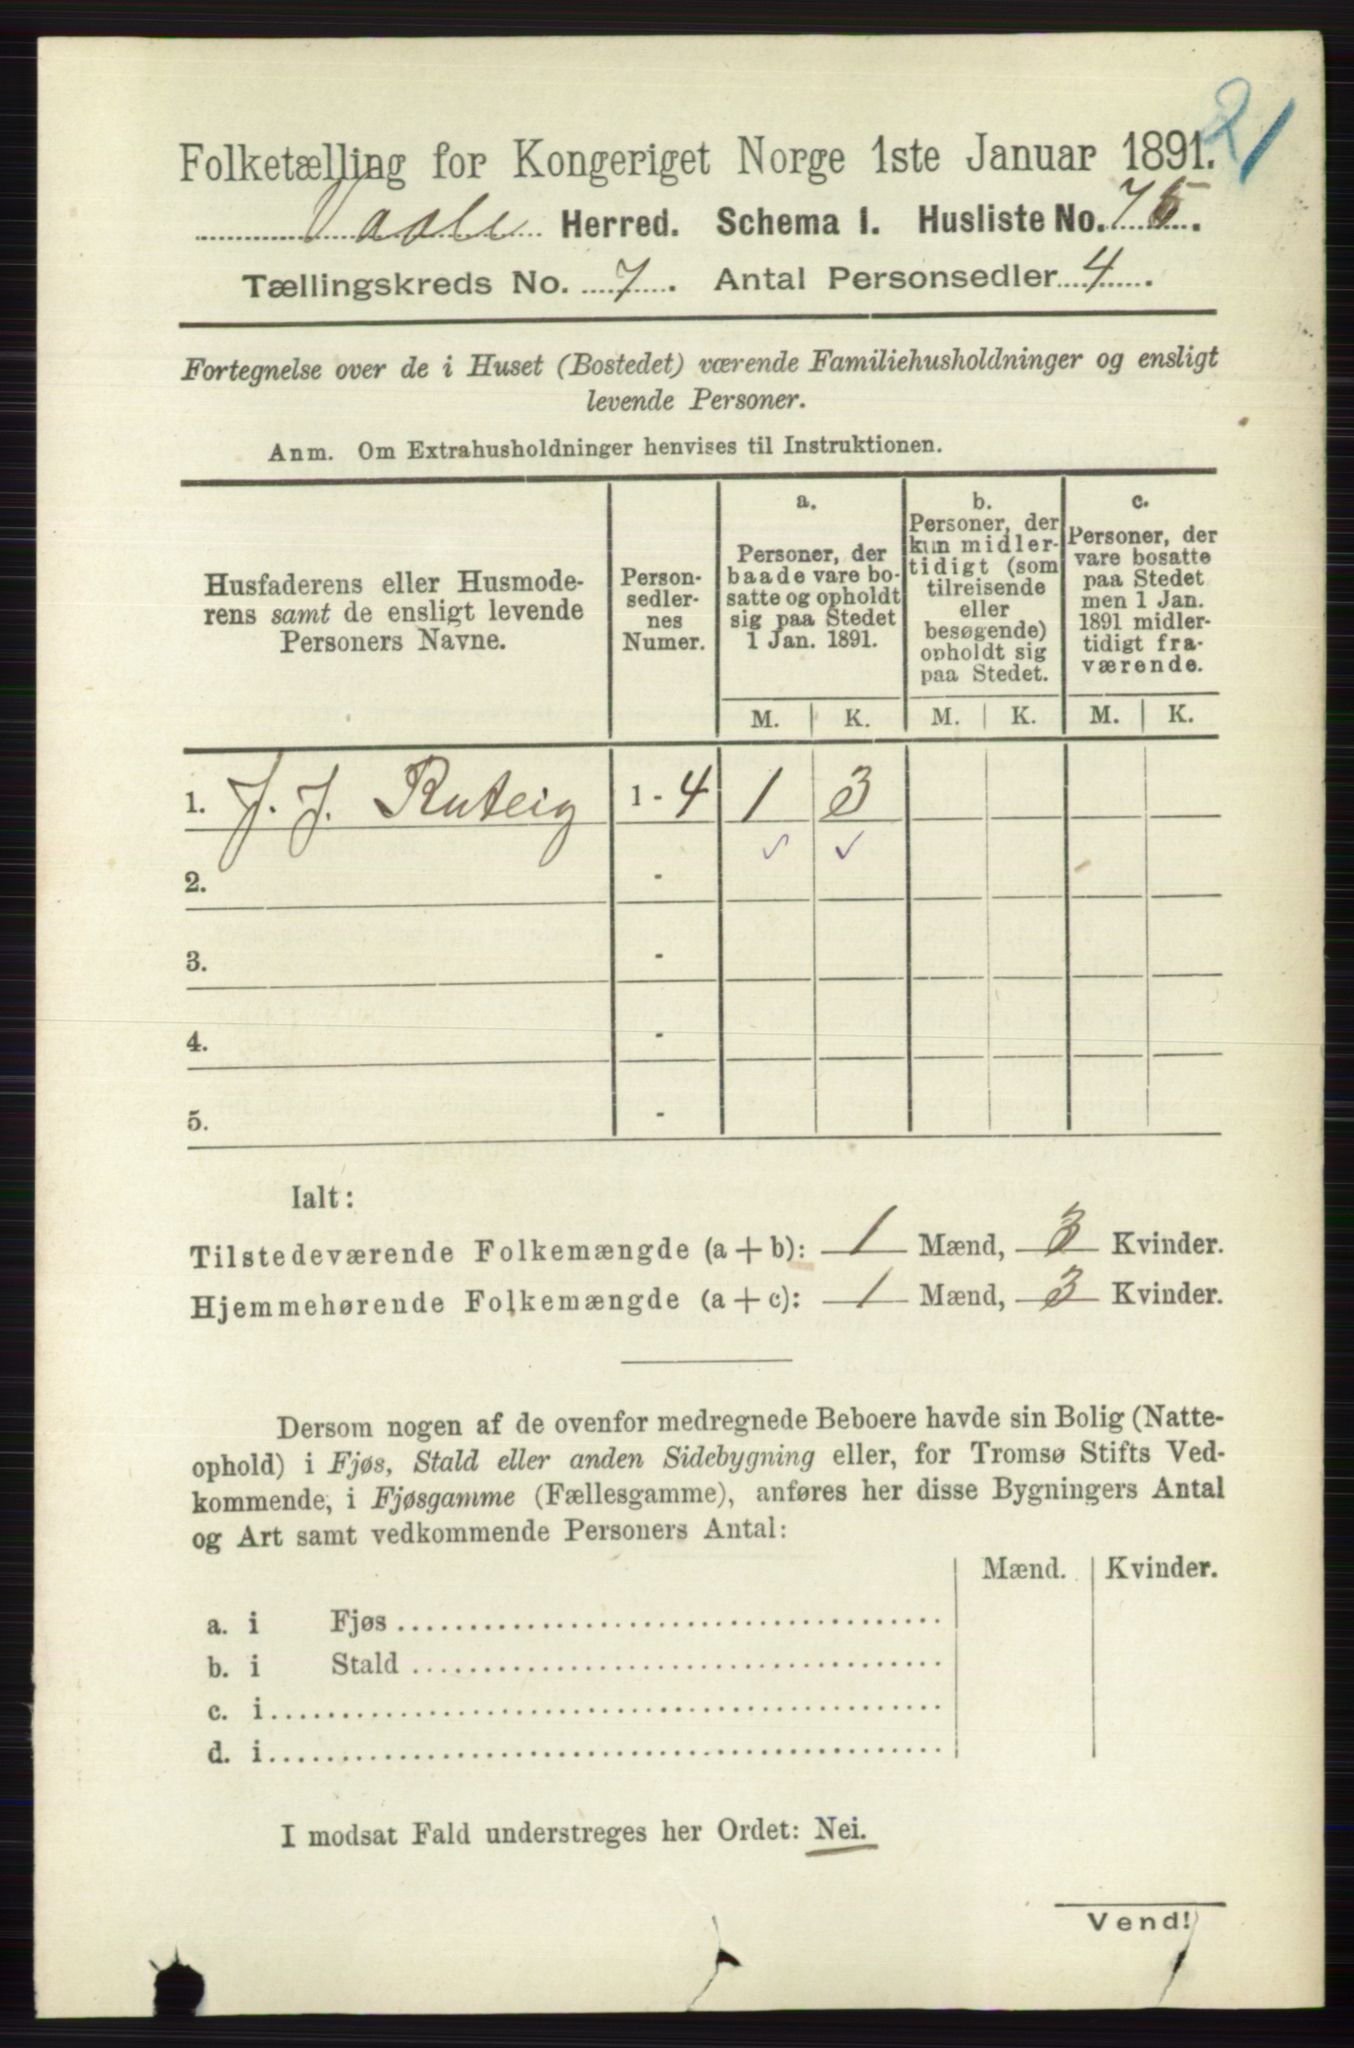 21
Folketælling for Kongeriget Norge 1ste Januar 1891.
Vaale Herred. Schema 1. Husliste No. 75.
Tællingskreds No. 7. Antal Personsedler 4.
Fortegnelse over de i Huset (Bostedet) værende Familiehusholdninger og ensligt
levende Personer.
Anm. Om Extrahusholdninger henvises til Instruktionen.
Husfaderens eller Husmode-
rens samt de ensligt levende
Personers Navne.
Person-
sedler-
nes
Numer.
a.
Personer, der
baade vare bo-
satte og opholdt
sig paa Stedet
1 Jan. 1891.
b.
Personer, der
kun midler-
tidigt (som
tilreisende
eller
besøgende)
opholdt sig
paa Stedet.
c.
Personer, der
vare bosatte
paa Stedet
men 1 Jan.
1891 midler-
tidigt fra-
værende.
M. K. M. K. M. K.
1. J. J. Ruteig 1 - 4 1 3
2. -
3. -
4. -
5. -
Ialt:
Tilstedeværende Folkemængde (a + b): 1 Mænd, 3 Kvinder.
Hjemmehørende Folkemængde (a + c): 1 Mænd, 3 Kvinder.
Dersom nogen af de ovenfor medregnede Beboere havde sin Bolig (Natte-
ophold) i Fjøs, Stald eller anden Sidebygning eller, for Tromsø Stifts Ved-
kommende, i Fjøsgamme (Fællesgamme), anføres her disse Bygningers Antal
og Art samt vedkommende Personers Antal:
Mænd. Kvinder.
a. i Fjøs
b. i Stald
c. i
d. i
I modsat Fald understreges her Ordet: Nei.
Vend!